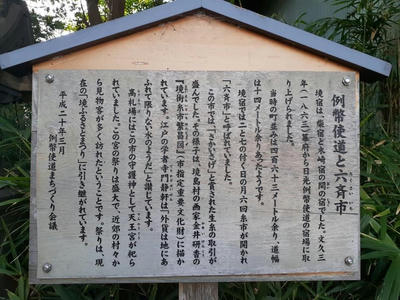 例幣使道と六斉市
境宿は、柴宿と木崎宿の間の宿でした。文久三
年(一八六三)幕府から日光例幣使道の宿場に取
り上げられました。
当時の町並みは四百六十三メートル余り、道幅
は十四メートル余りあったようです。
境宿では二と七の付く日の月六回糸市が開かれ
「六斉市」と呼ばれていました。
この市では「さかいさげ」と言われた生糸の取引が
盛んでした。その様子は、境島村の画家金井研香の
『境街糸市繁昌図』(市指定重要文化財)に描か
れています。江戸の学者寺門静軒は「外貨は地にあ
ふれて限りない水のようだ」と讃じています。
高札場にはこの市の守護神として天王宮が祀ら
れていました。この宮の祭りは盛大で、近郊の村々か
ら見物客が多く訪れたということです。祭りは、現
在の「境ふるさとまつり」に引き継がれています。
平成二十年三月
例幣使道まちづくり会議